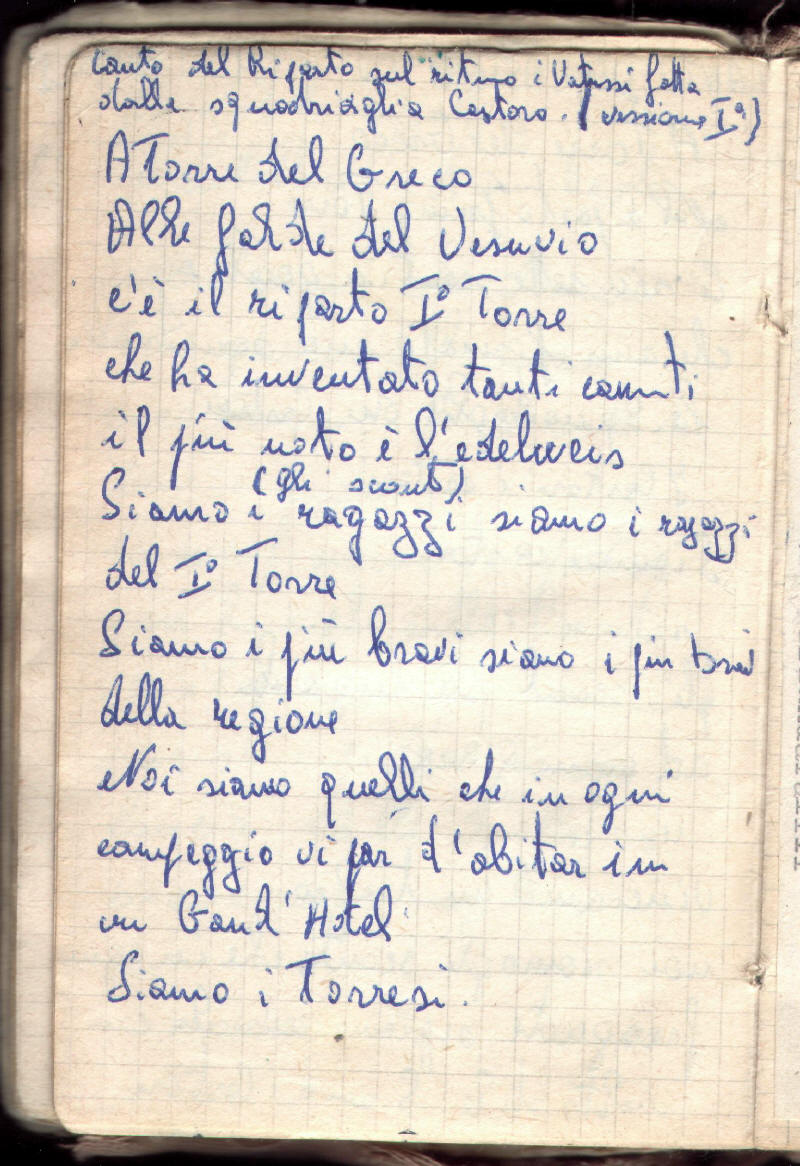 Canto del Riparto sul ritmo i Vatussi fatta
dalla squadriaglia Castoro. (versione I°)
A Torre del Greco
Alle falde del Vesuvio
c'è il riparto I° Torre
che ha inventato tanti canti
il più noto è l'edelweis
(gli scout)
Siamo i ragazzi siamo i ragazzi
del I° Torre
Siamo i più bravi siamo i più bravi
della regione
Noi siamo quelli che in ogni
campeggio vi par d'abitar in
un Gand' Hotel
Siamo i Torresi.